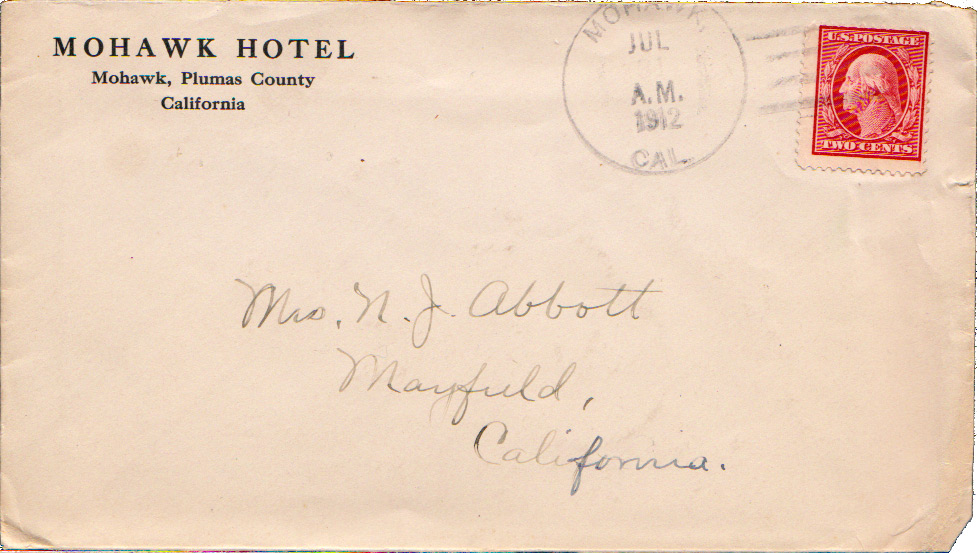 MOHAWK HOTEL
Mohawk, Plumas County
California
MOHAWK
JUL
A.M.
1912
CAL.
U.S. POSTAGE
TWO CENTS
Mrs. N. J. Abbott
Mayfield,
California.